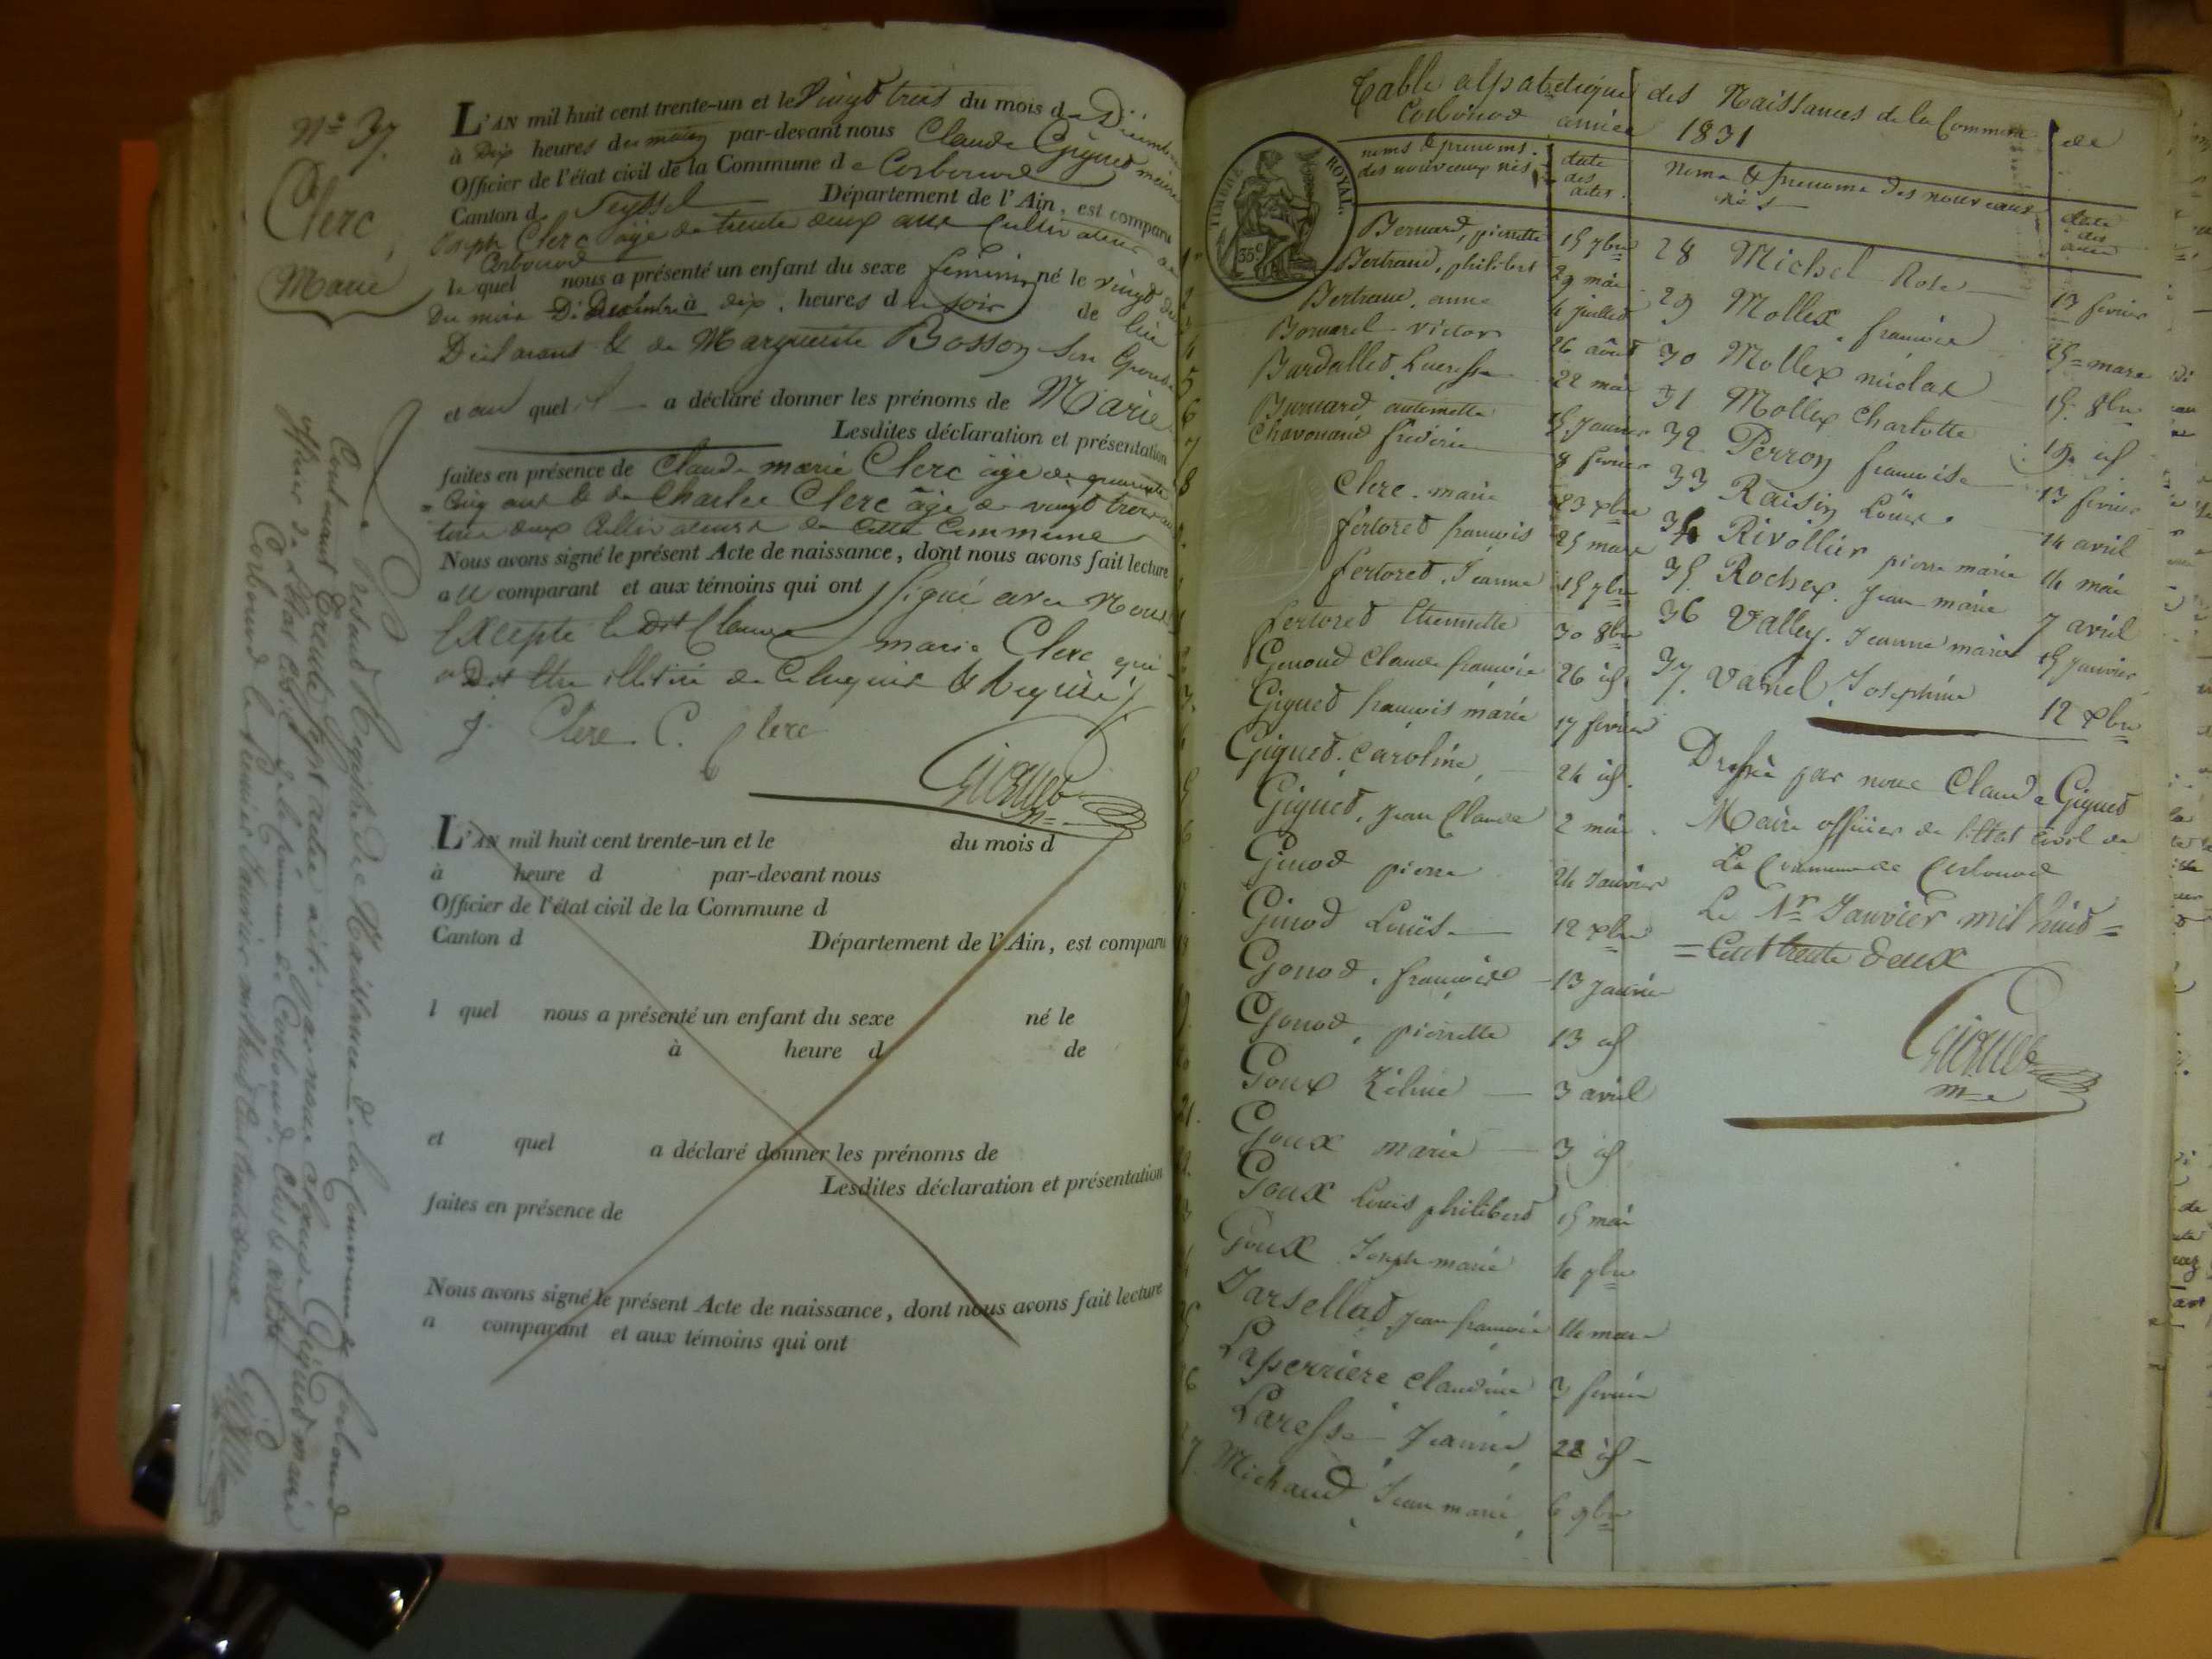 N° 37.
Clerc
Marie
L'AN mil huit cent trente-un et le vingt trois du mois de Décembre
à Dix heures du matin par-devant nous Claude Gignet maire
Officier de l'état civil de la Commune de Corbonod
Canton de Seyssel Département de l'Ain, est comparu
Joseph Clerc âgé de trente deux ans Cultivateur à
Corbonod
lequel nous a présenté un enfant du sexe féminin né le vingt
du mois De Décembre à dix heures du soir de lui
Déclarant & de Marguerite Bosson Son Epouse
et auquel il a déclaré donner les prénoms de Marie
Lesdites déclaration et présentation
faites en présence de Claude marie Clerc âgé de quarante
= cinq ans & de Charles Clerc âgé de vingt trois
tous deux Cultivateurs de Cette Commune
Nous avons signé le présent Acte de naissance, dont nous avons fait lecture
au comparant et aux témoins qui ont signé avec Nous
Excepté le Dit Claude marie Clerc qui
a Dit être illitiré de Ce enquis & Requis
j. Clerc C. Clerc
Gignet
m=
L'AN mil huit cent trente-un et le du mois d
à heure d par-devant nous
Officier de l'état civil de la Commune d
Canton d Département de l'Ain, est comparu
l quel nous a présenté un enfant du sexe né le
à heure d de
et quel a déclaré donner les prénoms de
Lesdites déclaration et présentation
faites en présence de
Nous avons signé le présent Acte de naissance, dont nous avons fait lecture
a comparant et aux témoins qui ont
Le Present Registre de Naissances de la Commune de Corbonod
Contenant Trente Sept actes a été par nous Claude Gignet maire
officier de l'état civil de la Commune de Corbonod, Clos & arrêté
Corbonod le Premier Janvier mil huit Cent trente deux
Table alpabetique des Naissances de la Commune de
Corbonod année 1831
noms & prenoms des nouveaux nés
date des actes
Noms & prenoms des nouveaux nés
date des actes
TIMBRE ROYAL
35c
Bernard, pierrette 15 9bre
Bertrand, philibert 29 mai
Bertrand, anne 4 juillet
Bornarel victor 26 août
Burdallet, Lucresse 22 mai
Burnard, antoinette 15 Janvier
Chavonand frédéric 8 fevrier
Clerc. marie 23 xbre
fertoret françois 25 mars
fertoret. Jeanne 15 9bre
fertoret Etiennette 30 8bre
Genoud Claude françois 26 id.
Gignet françois marie 17 fevrier
Gignet. Caroline 24 id.
Gignet, Jean Claude 2 mai
Ginod pierre 24 Janvier
Ginod Louïse 12 xbre
Gonod, françoise 13 Janvier
Gonod, pierrette 13 id
Goux Zéline 3 avril
Goux marie 3 id
Goux Louis philibert 15 mai
Goux Joseph marie 4 9bre
Jarsellat Jean françois 14 mars
Laperriere Claudine 3 fevrier
Laresse Jeanne 22 id
Michaud Jean marie 6 9bre
28 Michel Rose 13 fevrier
29 Mollex, françois 25 mars
30 Mollex nicolas 15 8bre
31 Mollex Charlotte 19 id
32 Perron françoise 13 fevrier
33 Raisin Louis 14 avril
34 Rivollier pierre marie 14 mai
35. Rochex. Jean marie 7 avril
36 Valley. Jeanne marie 15 Janvier
37. Vanel, Josephine 12 xbre
Dressée par nous Claude Gignet
Maire officier de l'Etat Civil de
La Commune de Corbonod
Le 1er Janvier mil huit =
= Cent trente deux
Gignet
m=e